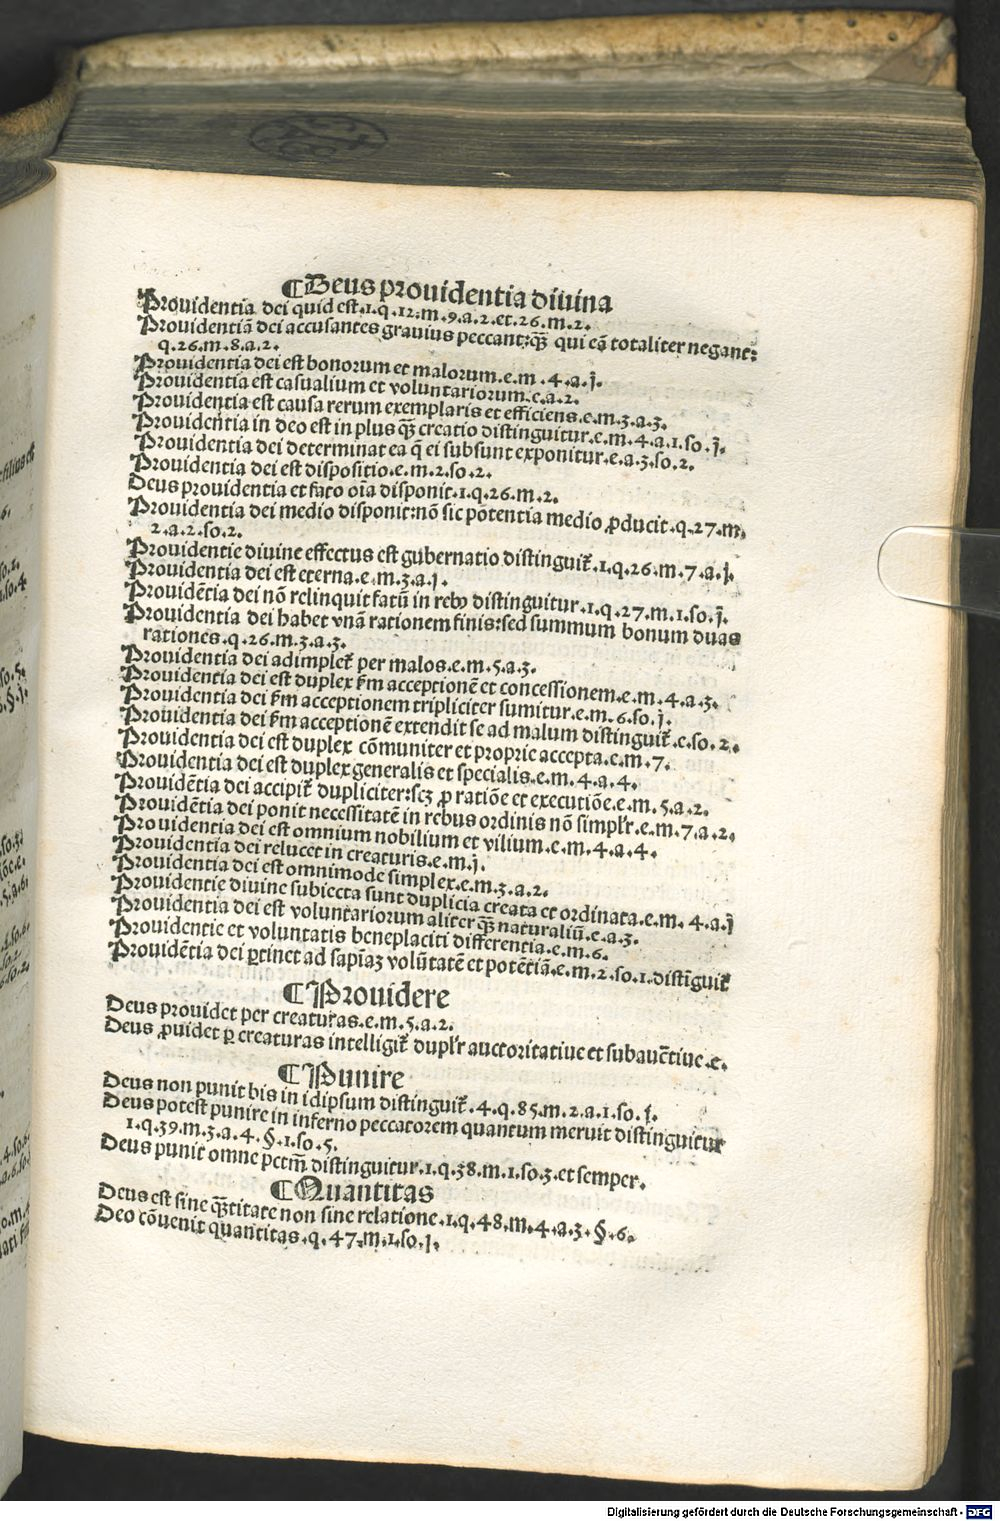 ¶Deus prouidentia diuina
Prouidentia dei quid est.1.q.12.m.9.a.2.et.26.m.2.
Prouidentiā dei accusantes grauius peccant:q̄ꝫ qui eā totaliter negant:
q.26.m.8.a.2.
Prouidentia dei est bonorum et malorum.e.m.4.a.j.
Prouidentia est casualium et voluntariorum.e.a.2.
Prouidentia est causa rerum exemplaris et efficiens.e.m.3.a.3.
Prouidentia in deo est in plus q̄ꝫ creatio distinguitur.e.m.4.a.1.so.j.
Prouidentia dei determinat ea q̄ ei subsunt exponitur.e.a.3.so.2.
Prouidentia dei est dispositio.e.m.2.so.2.
Deus prouidentia et fato oīa disponit.1.q.26.m.2.
Prouidentia dei medio disponit:nō sic potentia medio ꝓducit.q.27.m.
2.a.2.so.2.
Prouidentie diuine effectus est gubernatio distinguit̄.1.q.26.m.7.a.j.
Prouidentia dei est eterna.e.m.3.a.j.
Prouidētia dei nō relinquit fatū in rebꝰ distinguitur.1.q.27.m.1.so.j.
Prouidentia dei habet vnā rationem finis:sed summum bonum duas
rationes.q.26.m.3.a.3.
Prouidentia dei adimplet̄ per malos.e.m.5.a.3.
Prouidentia dei est duplex ẜm acceptionē et concessionem.e.m.4.a.3.
Prouidentia dei ẜm acceptionem tripliciter sumitur.e.m.6.so.j.
Prouidentia dei ẜm acceptionē extendit se ad malum distinguit̄.e.so.2.
Prouidentia dei est duplex cōmuniter et proprie accepta.e.m.7.
Prouidentia dei est duplex generalis et specialis.e.m.4.a.4.
Prouidētia dei accipit̄ dupliciter:scꝫ ꝓ ratiōe et executiōe.e.m.5.a.2.
Prouidētia dei ponit necessitatē in rebus ordinis nō simpl'r.e.m.7.a.2.
Prouidentia dei est omnium nobilium et vilium.e.m.4.a.4.
Prouidentia dei relucet in creaturis.e.m.j.
Prouidentia dei est omnimode simplex.e.m.3.a.2.
Prouidentie diuine subiecta sunt duplicia creata et ordinata.e.m.4.a.j
Prouidentia dei est voluntariorum aliter q̄ꝫ naturaliū.e.a.3.
Prouidentie et voluntatis beneplaciti differentia.e.m.6.
Prouidētia dei ꝑtinet ad sapiaꝫ volūtatē et potētiā.e.m.2.so.1.distīguit̄
¶Prouidere
Deus prouidet per creaturas.e.m.5.a.2.
Deus ꝓuidet ꝑ creaturas intelligit̄ dupl'r auctoritatiue et subauētiue.e.
¶Punire
Deus non punit bis in idipsum distinguit̄.4.q.85.m.2.a.1.so.j.
Deus potest punire in inferno peccatorem quantum meruit distinguitur
1.q.39.m.3.a.4.§.1.so.5.
Deus punit omne pctm̄ distinguitur.1.q.38.m.1.so.3.et semper.
¶Quantitas
Deus est sine q̄titate non sine relatione.1.q.48.m.4.a.3.§.6.
Deo cōuenit quantitas.q.47.m.1.so.j.
Digitalisierung gefördert durch die Deutsche Forschungsgemeinschaft - DFG